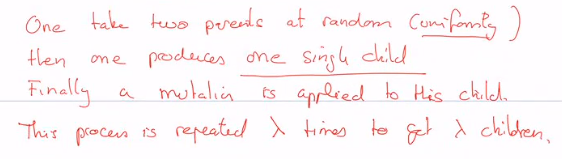 One take two parents at random (uniformly)
then one produces one single child
Finally a mutation is applied to this child.
This process is repeated λ times to get λ children.